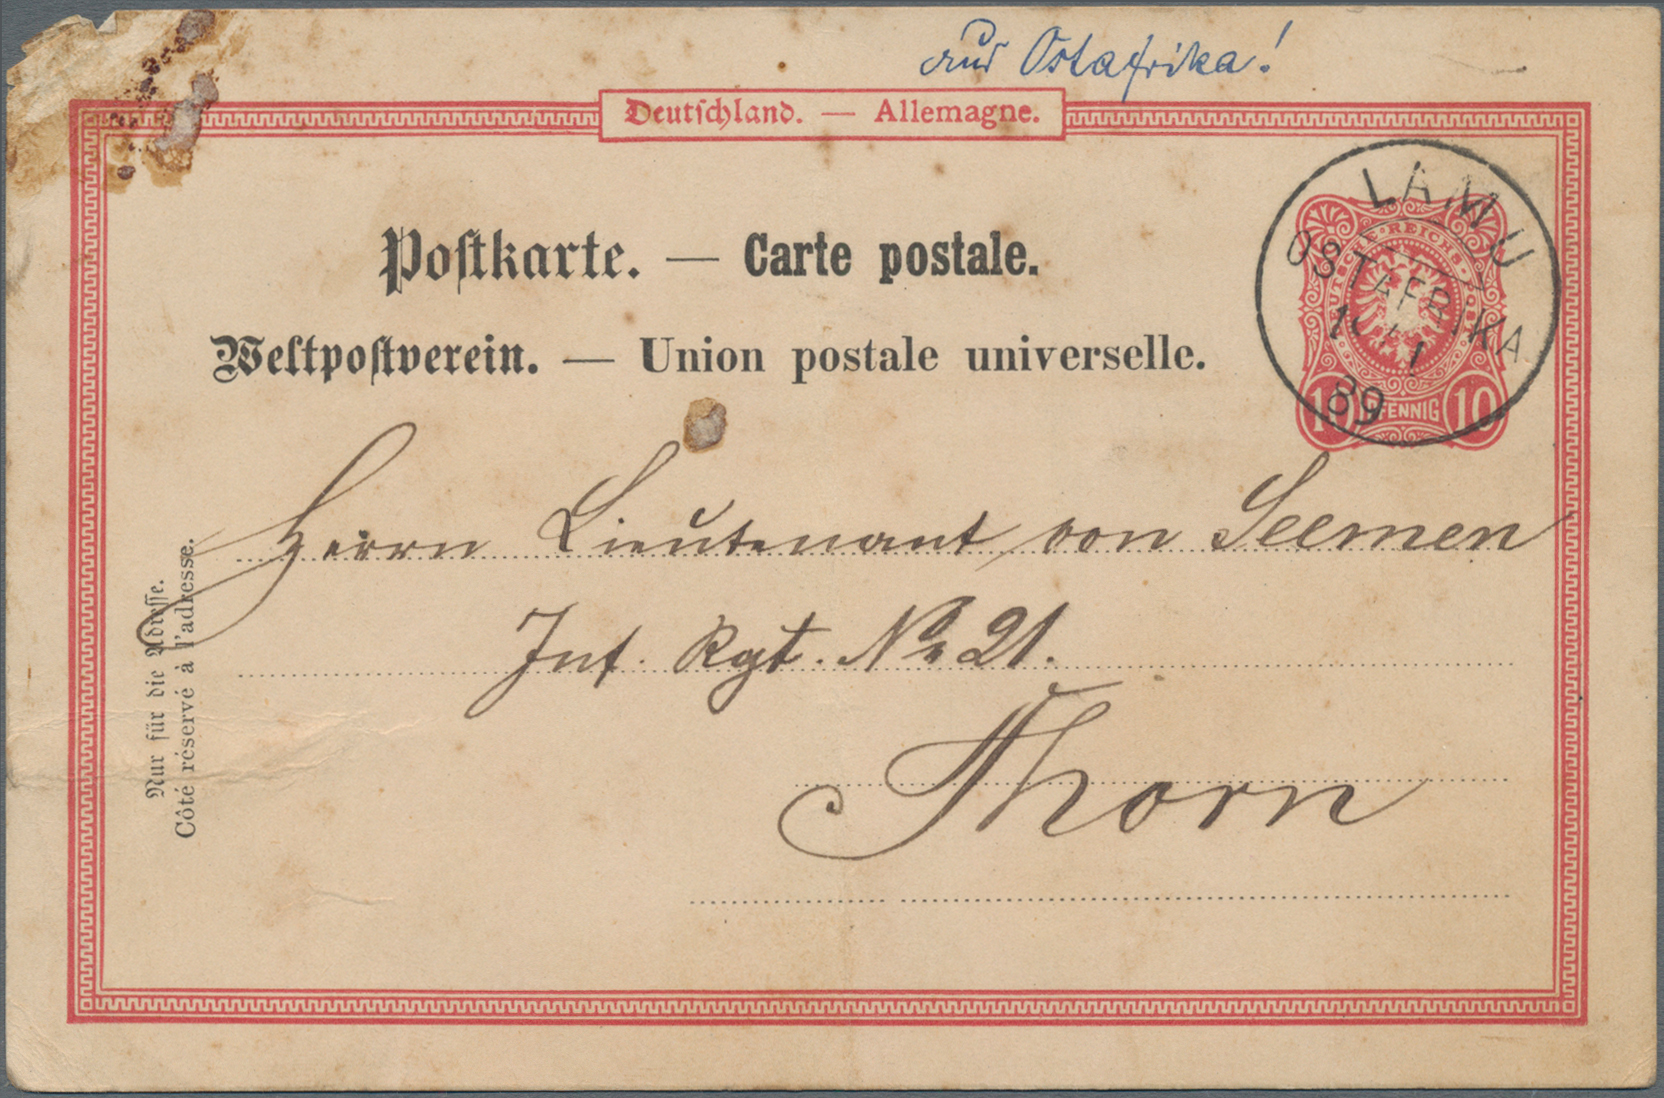 aus Ostafrika!
Deutſchland. — Allemagne.
Poſtkarte. — Carte postale.
Weltpoſtverein. — Union postale universelle.
LAMU
OSTAFRIKA
89
DEUTSCHE · REICHS · POST
10 PFENNIG 10
Herrn Lieutenant von Seemen
Inf. Rgt. No 21.
Thorn
Nur für die Adreſſe.
Côté réservé à l'adresse.